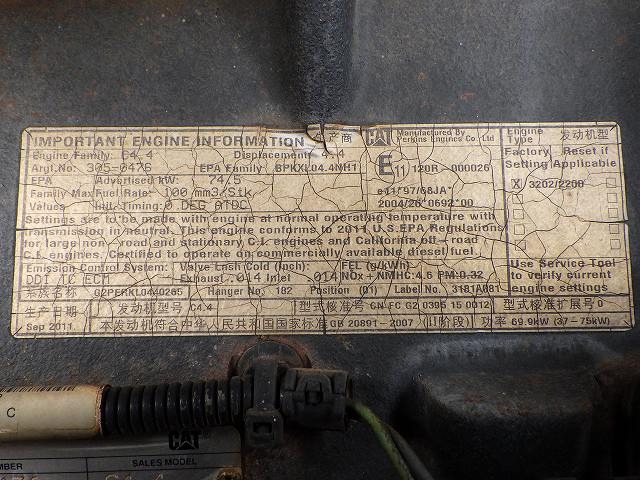 IMPORTANT ENGINE INFORMATION 生产商 CAT Manufactured By Perkins Engines Co., Ltd
Engine Type 发动机型
Engine Family: C4.4 Displacement: 4.4
Factory Reset if Setting Applicable
Argt.No: 305-0476 EPA Family BPKXL04.4NH1 E11 120R-000026
EPA Advertised kW: 74/5
X 3202/2200
Family Max Fuel Rate: 100 mm3/Stk e11*97/68JA*
Values Init. Timing: 0 DEG ATDC 2004/26*0692*00
Settings are to be made with engine at normal operating temperature with
transmission in neutral. This engine conforms to 2011 U.S.EPA Regulations
for large non-road and stationary C.I. engines and California off-road
C.I. engines. Certified to operate on commercially available diesel fuel.
Emission Control System: Valve Lash Cold (Inch): FEL (g/kWh):
DDI TC ECM Exhaust .014 Inlet .014 NOx+NMHC:4.6 PM:0.32
Use Service Tool to verify current engine settings
系族名称 02PERKL0440265 Hanger No. 182 Position (01) Label 3181A081
生产日期 发动机型号 C4.4 型式核准号 CN FC G2 0395 15 0012 型式核准扩展号 0
Sep 2011 本发动机符合中华人民共和国国家标准 GB 20891-2007 (II阶段) 功率 69.9kW (37-75kW)
C
CAT
SALES MODEL